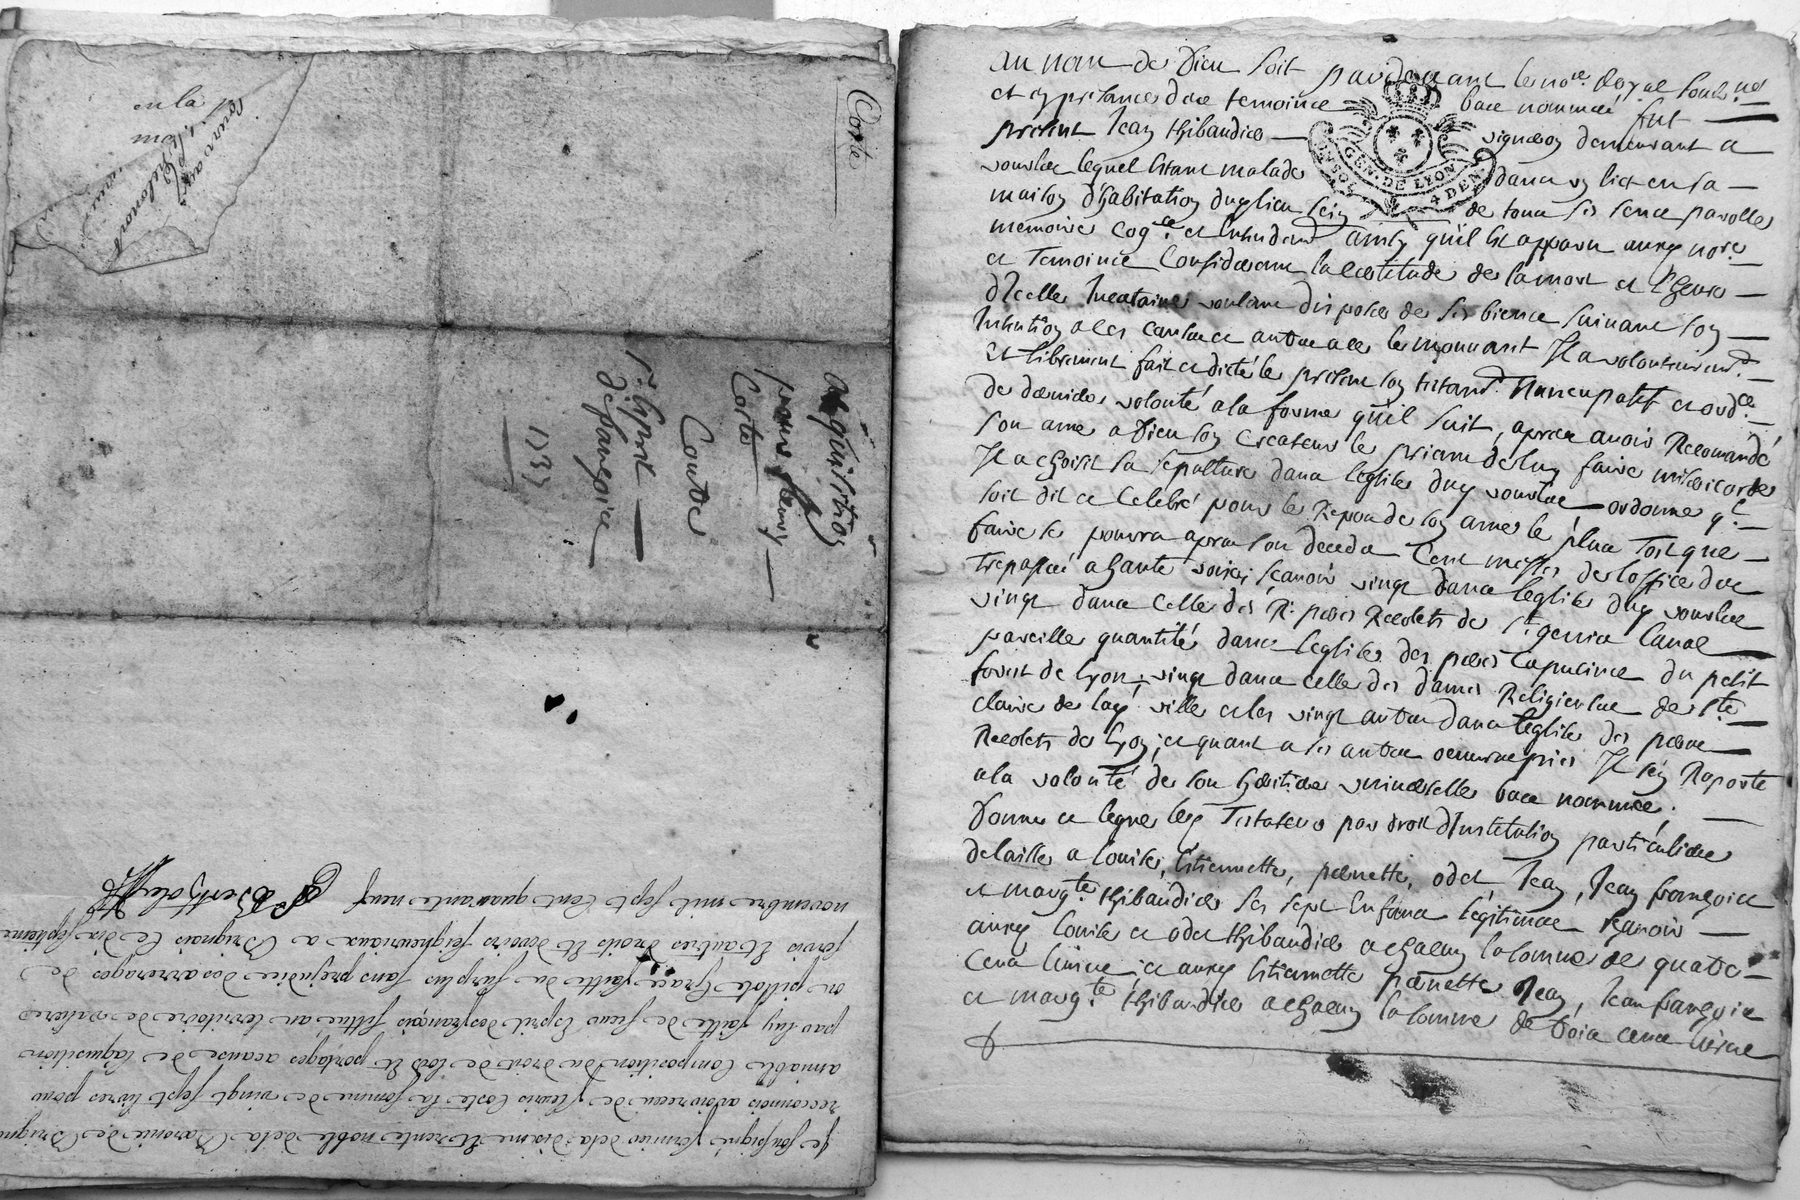 Coste
en la
acquisition
pour fleury
Coste
Contre
Sr. Esprit
defrançois
1733
Je soussigné fermier de la dixme et rente noble de la Baronie de Brignais
reconnois avoir reçu de fleuris Coste la somme de vingt sept livres pour
amiable Composition du droit de lods et portages acause de laquisition
par luy faitte de sieur Esprit defrançois scittué au territoire de
ou pillote Grace faitte du surplus sans prejudice des arrerages de
servis et autres droits et devoirs seigneuriaux a Brignais ce dix septieme
novembre mil sept Cent quarante neuf
au nom de Dieu soit par devant le nore Royal soubsne
et en presence des temoins bas nommés fut
present Jean thibaudier vigneron demeurant a
vourles lequel estant malade dans un lict en sa
maison d'habitation dud lieu sein de tous ses sens parolle
memoire et entendemt ainsy qu'il est apparu auxd nore
et Temoins Considerant la certitude de la mort et l'heure
d'Icelle Incertaine voulant disposer de ses biens suivant son
Intention a ces causes et autres a ce le mouvant Il a volontairemt
et librement fait et dicté le present son testamt Nuncupatif et ordce
de derniere volonté a la forme qu'il suit, apres avoir Recomandé
son ame a Dieu son Createur le priant de luy faire misericorde
Il a choisit sa sepulture dans l'eglise dud vourles ordonne qt
soit dit et Celebré pour le Repos de son ame le plus Tost que
faire se pourra apres son deceds Cent messes de l'office des
trepassés a haute voix, sçavoir vingt dans l'eglise dud vourles
vingt dans Celle des R. peres Recolets de st genis laval
pareille quantité dans l'eglise des peres Capucins du petit
forest de lyon, vingt dans celle des dames Religieuses de ste
claire de lad ville et les vingt autres dans l'eglise des peres
Recolets de lyon; et quant a ses autres oeuvres pies Il s'en Raporte
a la volonté de son heritiere universelle bas nommée.
Donne et legue led Testateur par droit d'Institution particuliere
delaisse a louise, Estiennette, pernette, odet, Jean, Jean françois
et margte thibaudier ses sept Enfans legitimes sçavoir
auxd louise et odet thibaudier a chacun la somme de quatre
Cens livres, et auxd Estiennette pernette Jean, Jean françois
et margte thibaudier a chacun la somme de trois cens livres
GEN. DE LYON
4 DEN.